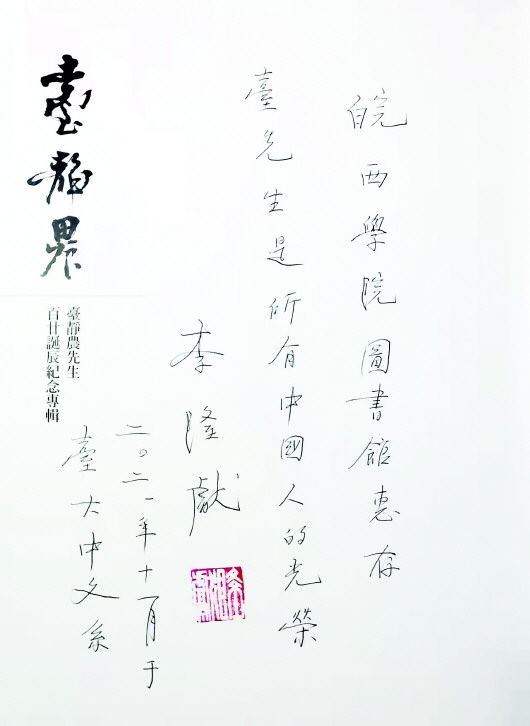 皖西學院圖書館惠存
臺先生是所有中國人的光榮
李隆獻
二〇二一年十一月于
臺大中文系
臺靜農
臺靜農先生
百廿誕辰紀念專輯